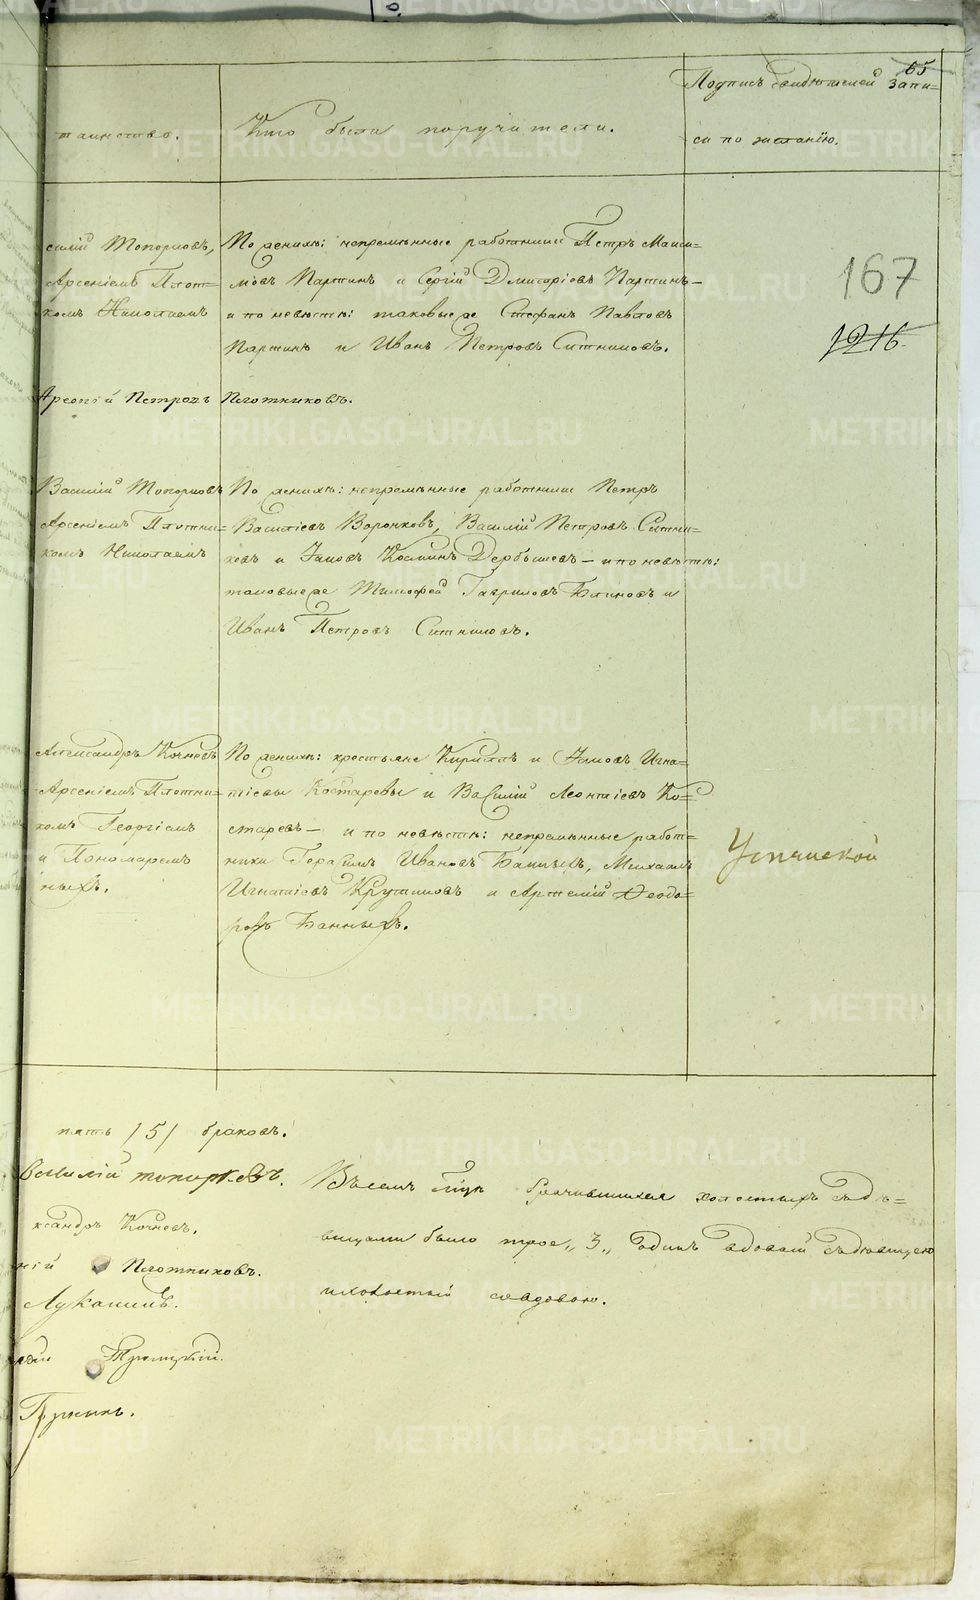 65
таинство.
Кто были поручители.
Подпись свидѣтелей запи-
си по желанію.
силій Топорковъ,
Арсеніемъ Плот-
комъ Николаемъ
По женихѣ: непремѣнные работники Петръ Макси-
мовъ Паршинъ и Сергій Дмитріевъ Паршинъ –
и по невѣстѣ: таковые же Стефанъ Павловъ
Паршинъ и Иванъ Петровъ Ситниковъ.
167
1216.
Арсеній Петровъ Плотниковъ.
Василій Топорковъ
Арсеніемъ Плотни-
комъ Николаемъ
По женихѣ: непремѣнные работники Петръ
Васильевъ Воронковъ, Василій Петровъ Ситни-
ковъ и Іаковъ Козминъ Дербышевъ – и по невѣстѣ:
таковые же Тимофей Гавриловъ Блиновъ и
Иванъ Петровъ Ситниковъ.
Александръ Кочневъ
Арсеніемъ Плотни-
комъ Георгіемъ
и Пономаремъ
ныхъ.
По женихѣ: крестьяне Кириллъ и Іаковъ Игна-
тіевы Костаревы и Василій Леонтіевъ Ко-
старевъ – и по невѣстѣ: непремѣнные работ-
ники Герасимъ Ивановъ Банныхъ, Михаилъ
Игнатіевъ Крутиковъ и Артемій Ѳеодо-
ровъ Банныхъ.
Успенской
пять /5/ браковъ.
Василій Топорковъ.
ксандръ Кочневъ.
ній Плотниковъ.
Лукашинъ.
Троицкій.
Пункинъ.
Въ семъ бравшихся холостыхъ съ дѣ-
вицами было трое „3„ одинъ вдовый съ дѣвицею
и холостый со вдовою.
METRIKI.GASO-URAL.RU